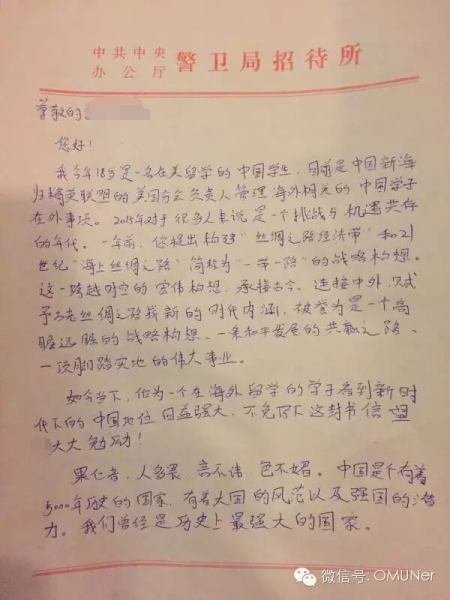 中共中央
办公厅 警卫局招待所
尊敬的
您好！
我今年18岁是一名在美留学的中国学生，目前是中国新海
归精英联盟的美国分会负责人管理海外相关的中国学子
在外事项。2015年对于很多人来说是一个挑战与机遇共存
的年代。一年前，您提出构建"丝绸之路经济带"和21
世纪"海上丝绸之路"简称为"一带一路"的战略构想。
这一跨越时空的宏伟构想，承接古今、连接中外，赋
予古老丝绸之路崭新的时代内涵，被誉为是一个高
瞻远瞩的战略构想、一条和平发展的共赢之路、
一项脚踏实地的伟大事业。
如今当下，作为一个在海外留学的学子看到新时
代下的中国地位日益强大，不免写下这封书信望
大大勉励！
果仁者，人多畏，言不讳，色不媚。中国是个有着
5000年历史的国家，有着大国的风范以及强国的潜
力。我们曾经是历史上最强大的国家。
微信号: OMUNer